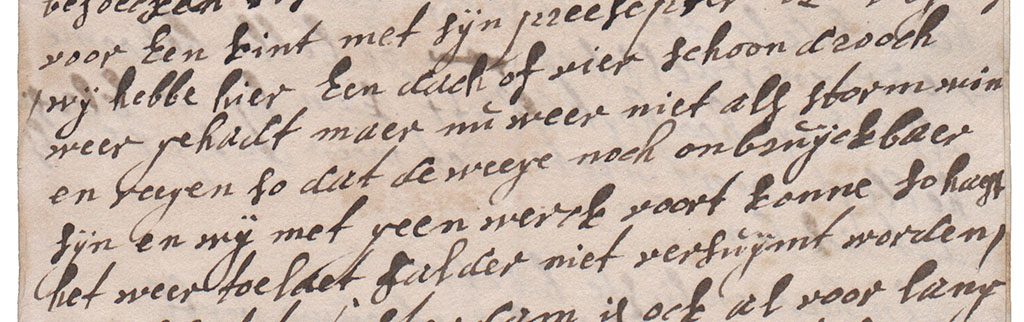 voor Een kint met sÿn preesepter
wÿ hebbe hier Een dach of vier schoon drooch
weer gehadt maer nu weer niet als storm win
en regen so dat de weege noch onbruÿckbaer
sÿn en wÿ met geen werck voort konne so haest
het weer toelaet salder niet versuÿmt worden,
is ock al voor lang